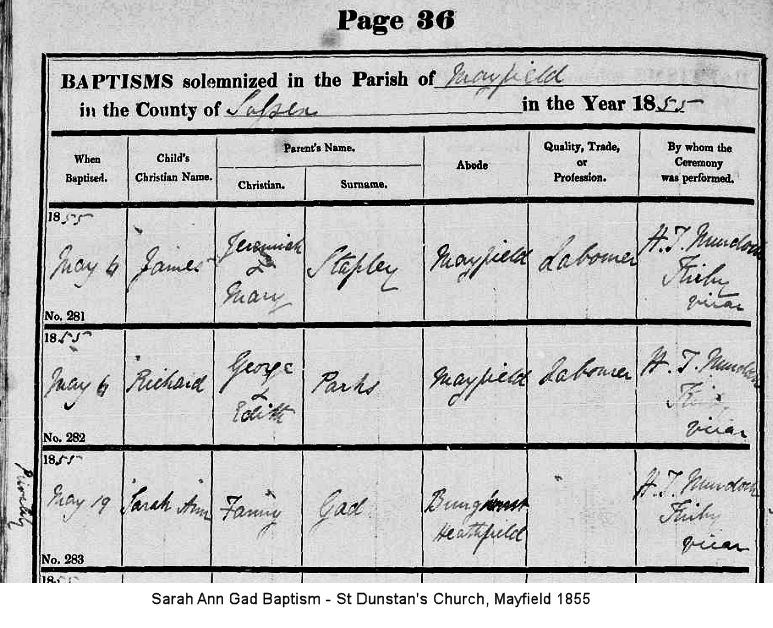 Page 36
BAPTISMS solemnized in the Parish of Mayfield
in the County of Sussex in the Year 1855
When Baptised. Child's Christian Name. Parent's Name. Christian. Surname. Abode Quality, Trade, or Profession. By whom the Ceremony was performed.
1855
May 6 James Jeremiah & Mary Stapley Mayfield Labourer H. T. Murdoch Kirby vicar
No. 281
1855
May 6 Richard George & Edith Parks Mayfield Labourer H. T. Murdoch Kirby vicar
No. 282
1855
Privately May 19 Sarah Ann Fanny Gad Heathfield H. T. Murdoch Kirby vicar
No. 283
1855
Sarah Ann Gad Baptism - St Dunstan's Church, Mayfield 1855